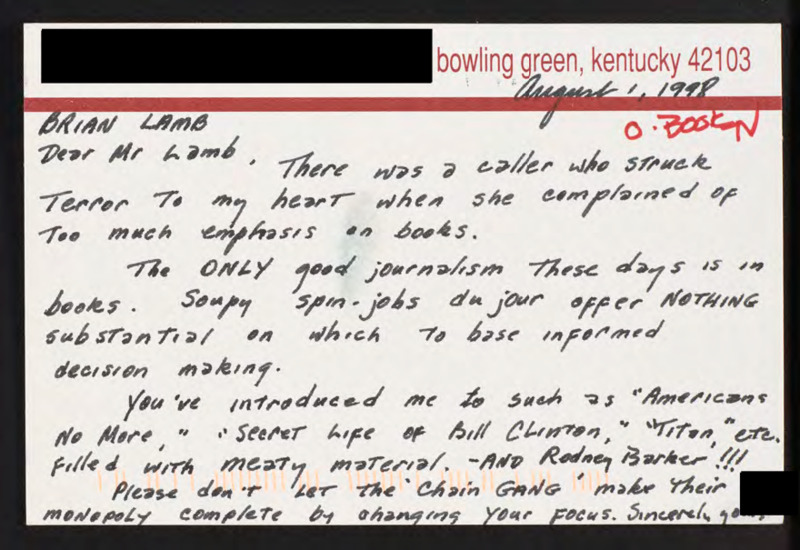 bowling green, kentucky 42103
August 1, 1998
BRIAN LAMB
O. BOOKN
Dear Mr Lamb, There was a caller who struck
Terror To my heart when she complained of
Too much emphasis on books.
The ONLY good journalism These days is in
books. Soupy spin-jobs du jour offer NOTHING
substantial on which To base informed
decision making.
You've introduced me to such as "Americans
No More," "Secret Life of Bill Clinton," "Titan," etc.
filled with meaty material -AND Rodney Barker!!!
Please don't let the "Chain GANG" make Their
monopoly complete by changing your focus. Sincerely,